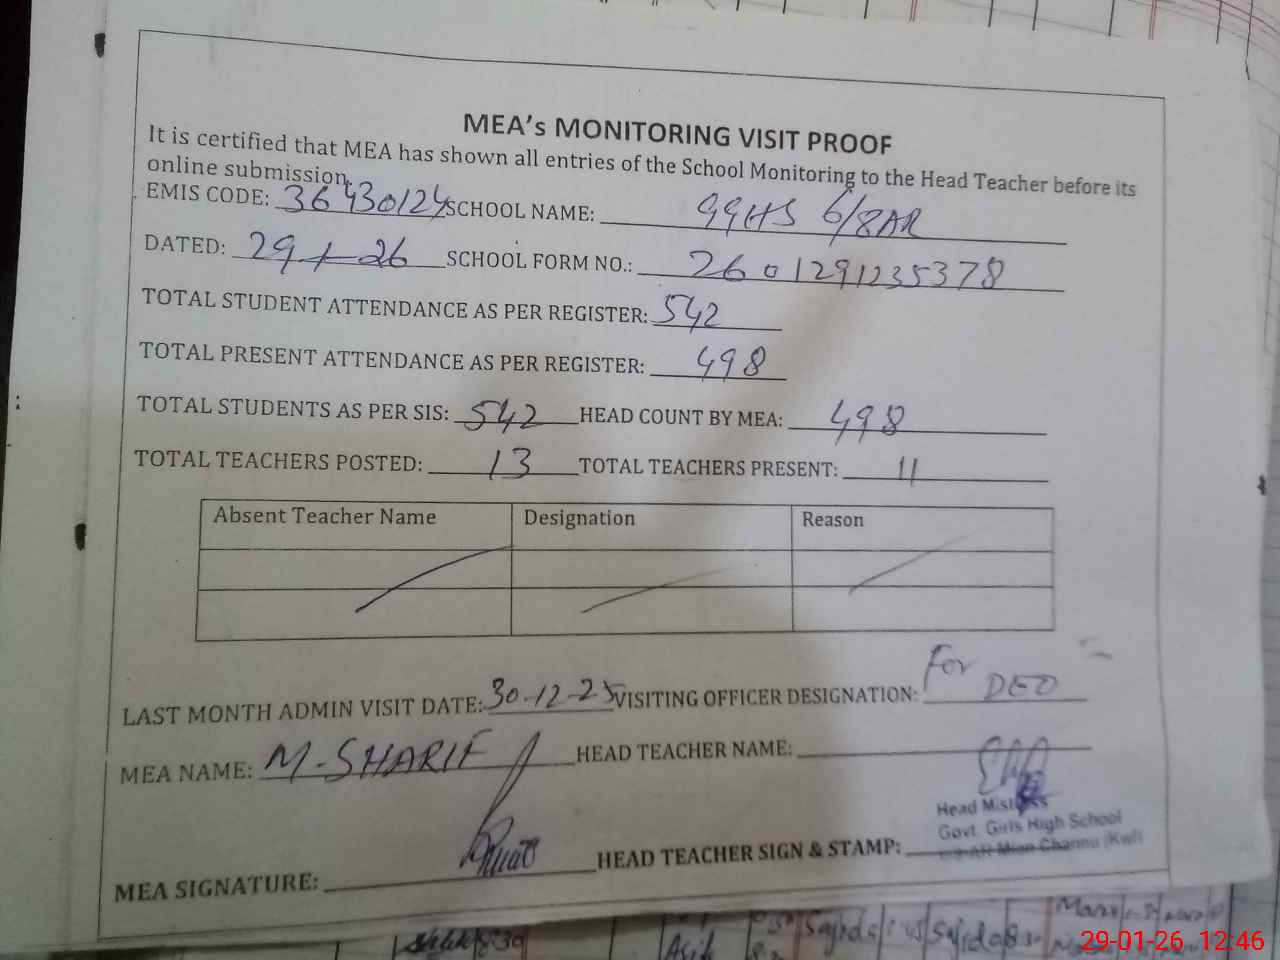 MEA's MONITORING VISIT PROOF
It is certified that MEA has shown all entries of the School Monitoring to the Head Teacher before its
online submission.
EMIS CODE: 36430124 SCHOOL NAME: GGHS 6/8AR
DATED: 29-1-26 SCHOOL FORM NO.: 2601291235378
TOTAL STUDENT ATTENDANCE AS PER REGISTER: 542
TOTAL PRESENT ATTENDANCE AS PER REGISTER: 498
TOTAL STUDENTS AS PER SIS: 542 HEAD COUNT BY MEA: 498
TOTAL TEACHERS POSTED: 13 TOTAL TEACHERS PRESENT: 11
Absent Teacher Name Designation Reason
LAST MONTH ADMIN VISIT DATE: 30-12-25 VISITING OFFICER DESIGNATION: For DEO
MEA NAME: M-SHARIF HEAD TEACHER NAME:
Head Mistress
Govt. Girls High School
MEA SIGNATURE: HEAD TEACHER SIGN & STAMP: Mian Channu (Kwl)
Sajida Sajida
29-01-26 12:46